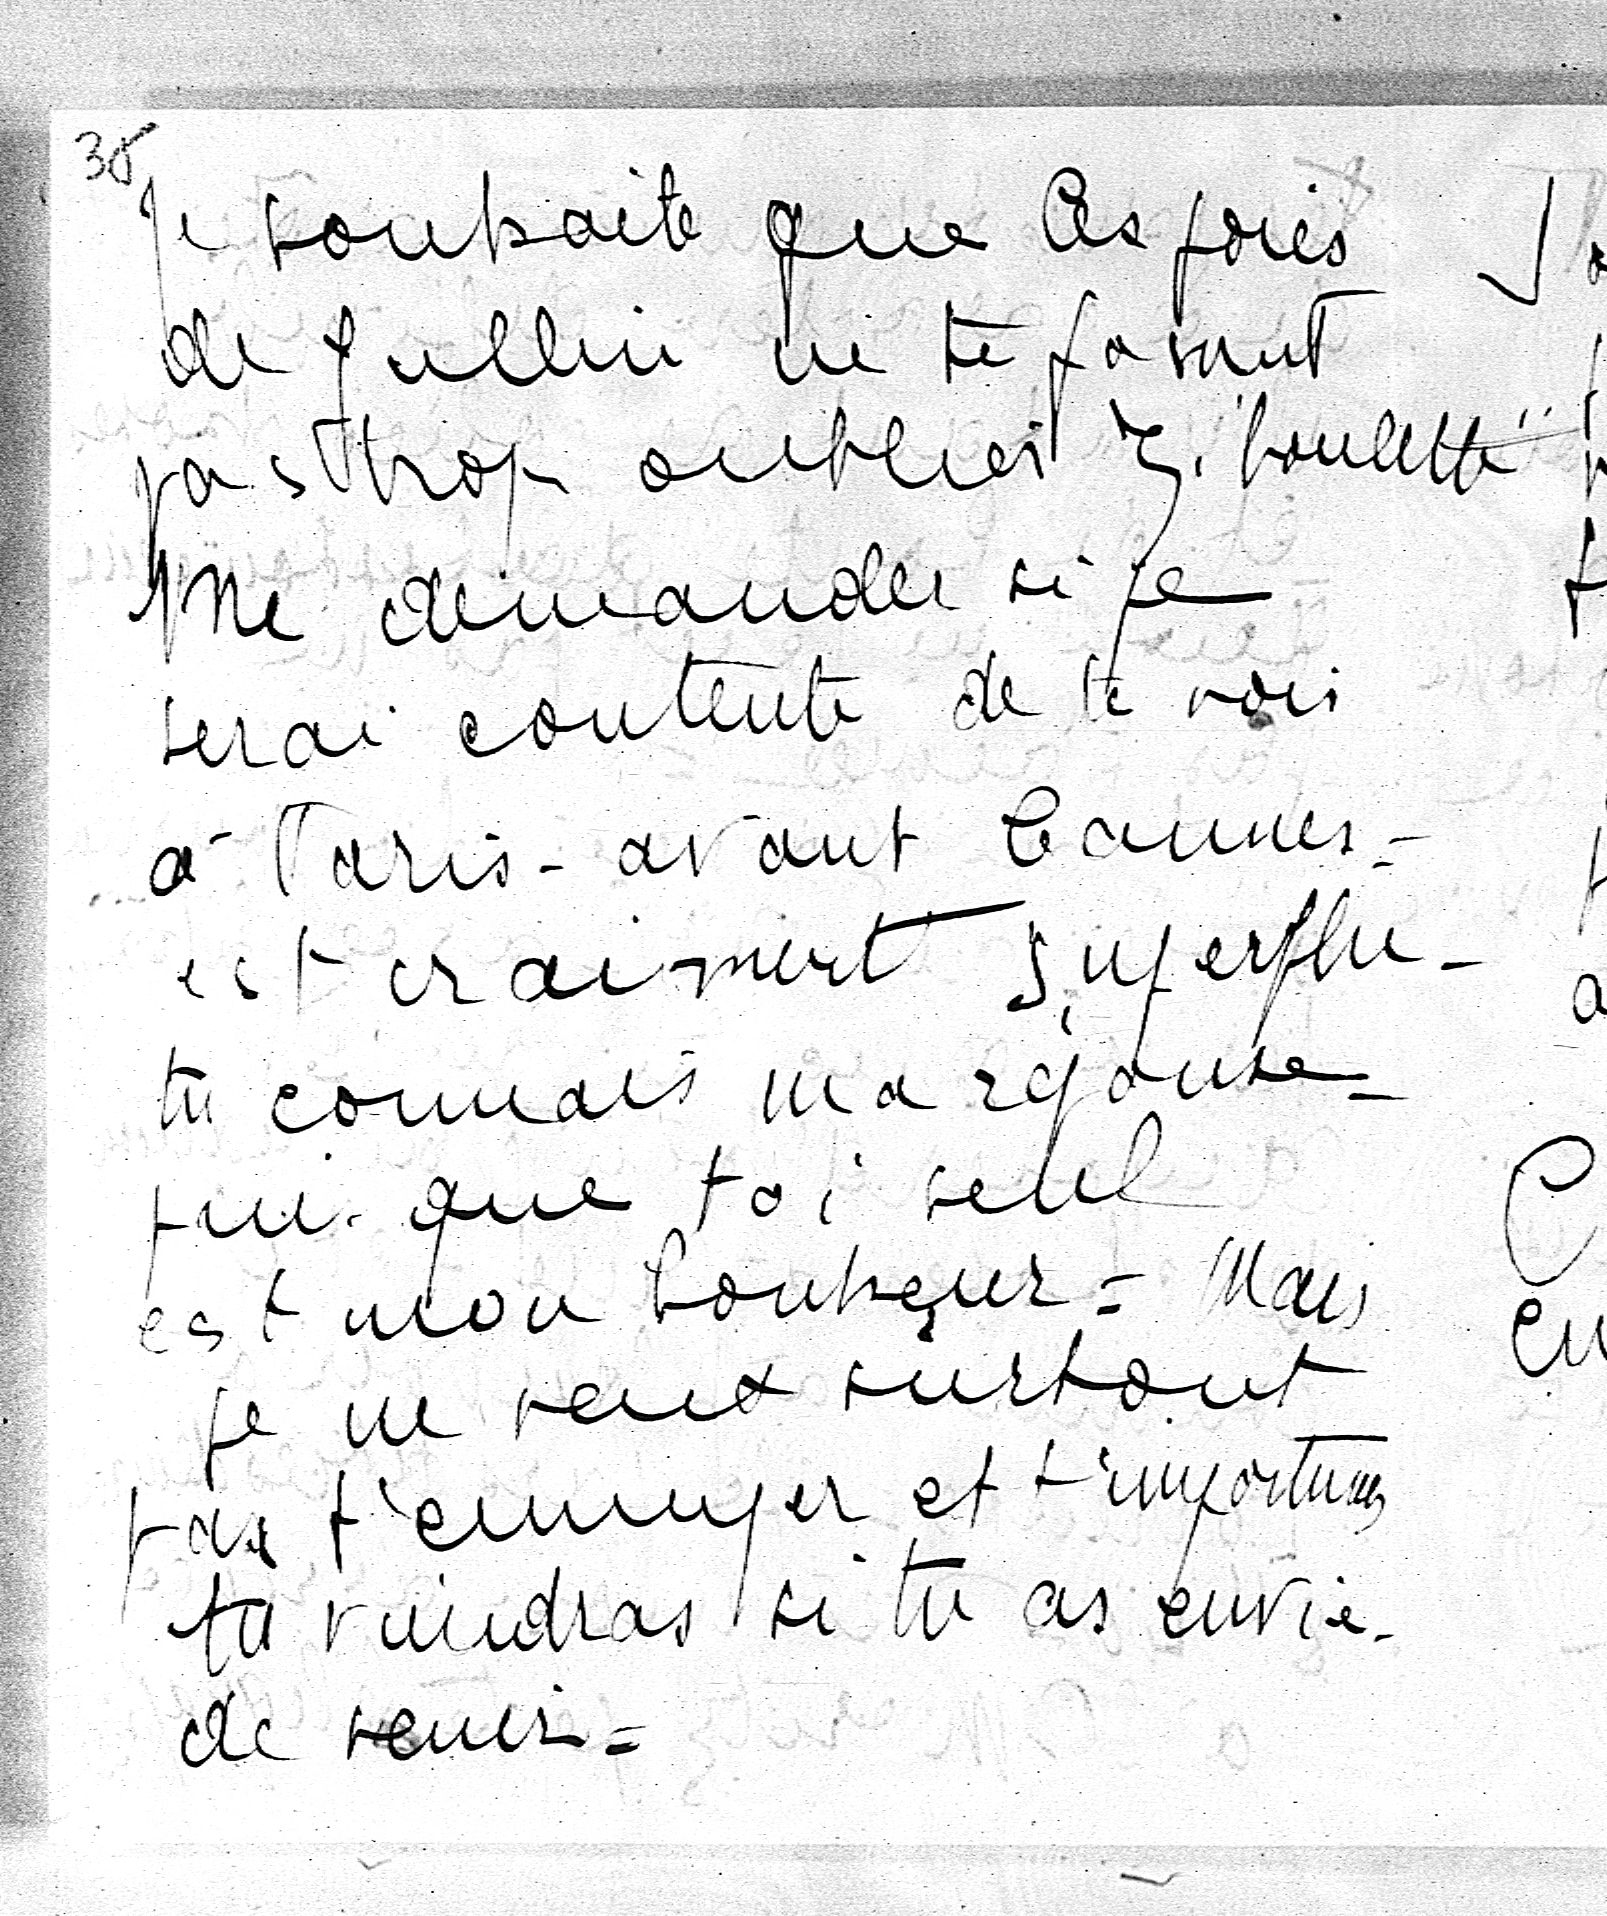 38
Je souhaite que les joies
de Jullin ne te fassent
pas trop oublier "Ziboulette"
Me demander si je
serai contente de te voir
à Paris - avant Cannes -
est vraiment superflu -
tu connais ma réponse -
puisque toi seul
est mon bonheur = Mais
je ne veux surtout
pas t'ennuyer et t'importuner
tu viendras si tu as envie -
de venir =